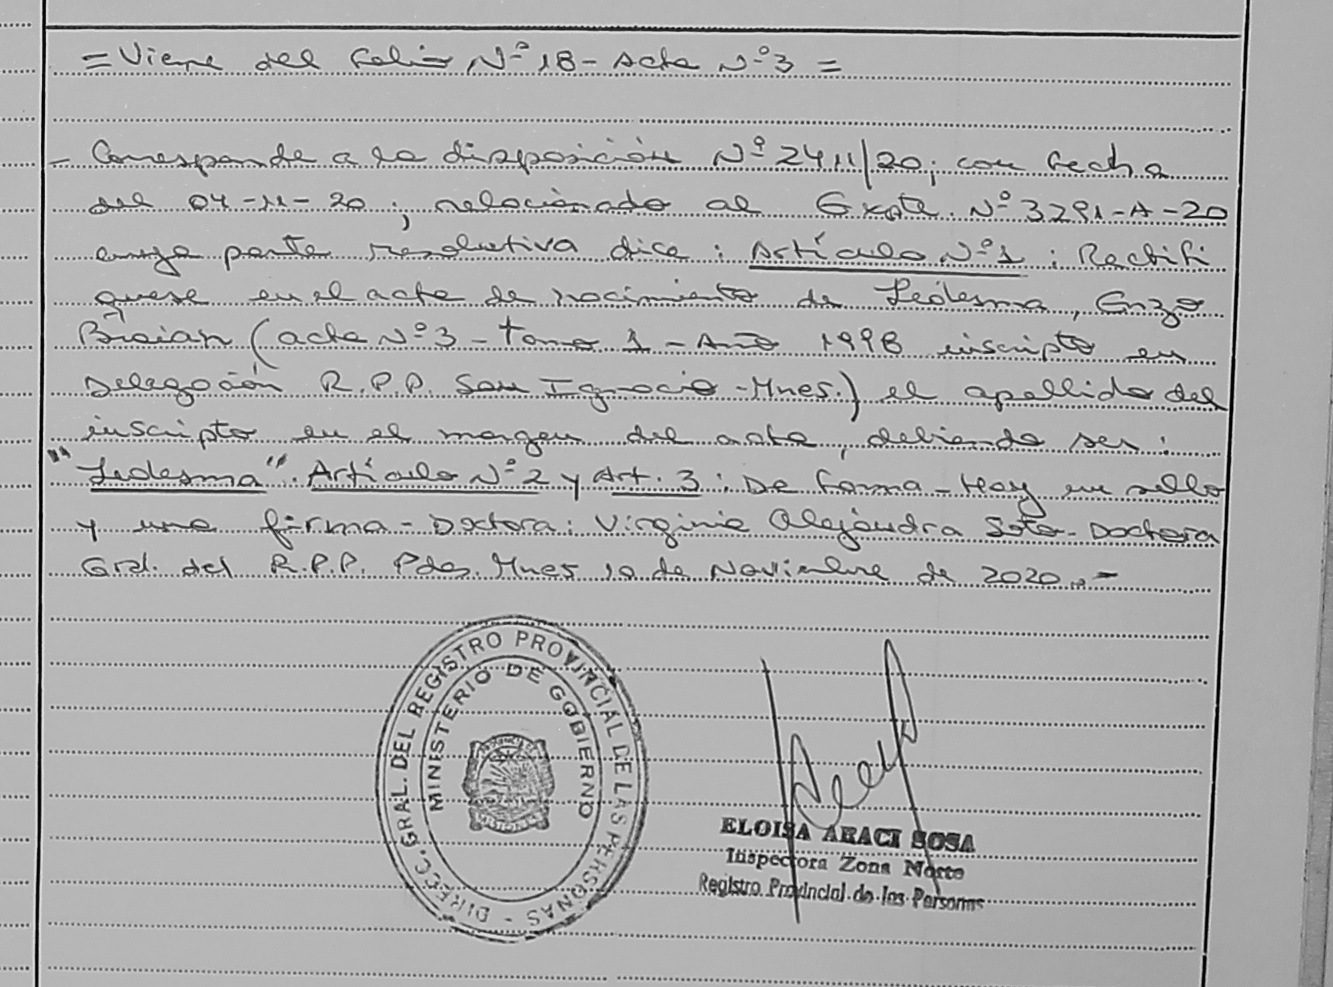 = Viene del Folio Nº 18 - Acta Nº 3 =
- Corresponde a la disposición Nº 2411/20; con fecha
del 04-11-20; relacionado al Expte. Nº 3291-A-20
cuya parte resolutiva dice: Artículo Nº 1: Rectifí
quese en el acta de nacimiento de Ledesma, Enzo
Braian (acta Nº 3 - tomo 1 - Año 1998 inscripto en
Delegación R.P.P. San Ignacio - Mnes.) el apellido del
inscripto en el margen del acta, debiendo ser:
"Ledesma". Artículo Nº 2 y Art. 3: De forma - Hay un sello
y una firma - Doctora: Virginia Alejandra Soto - Doctora
Gral. del R.P.P. Pdas. Mnes 10 de Noviembre de 2020.-
DIRECC. GRAL. DEL REGISTRO PROVINCIAL DE LAS PERSONAS -
MINISTERIO DE GOBIERNO
MISIONES
ELOISA ARACI SOSA
Inspectora Zona Norte
Registro Provincial de las Personas